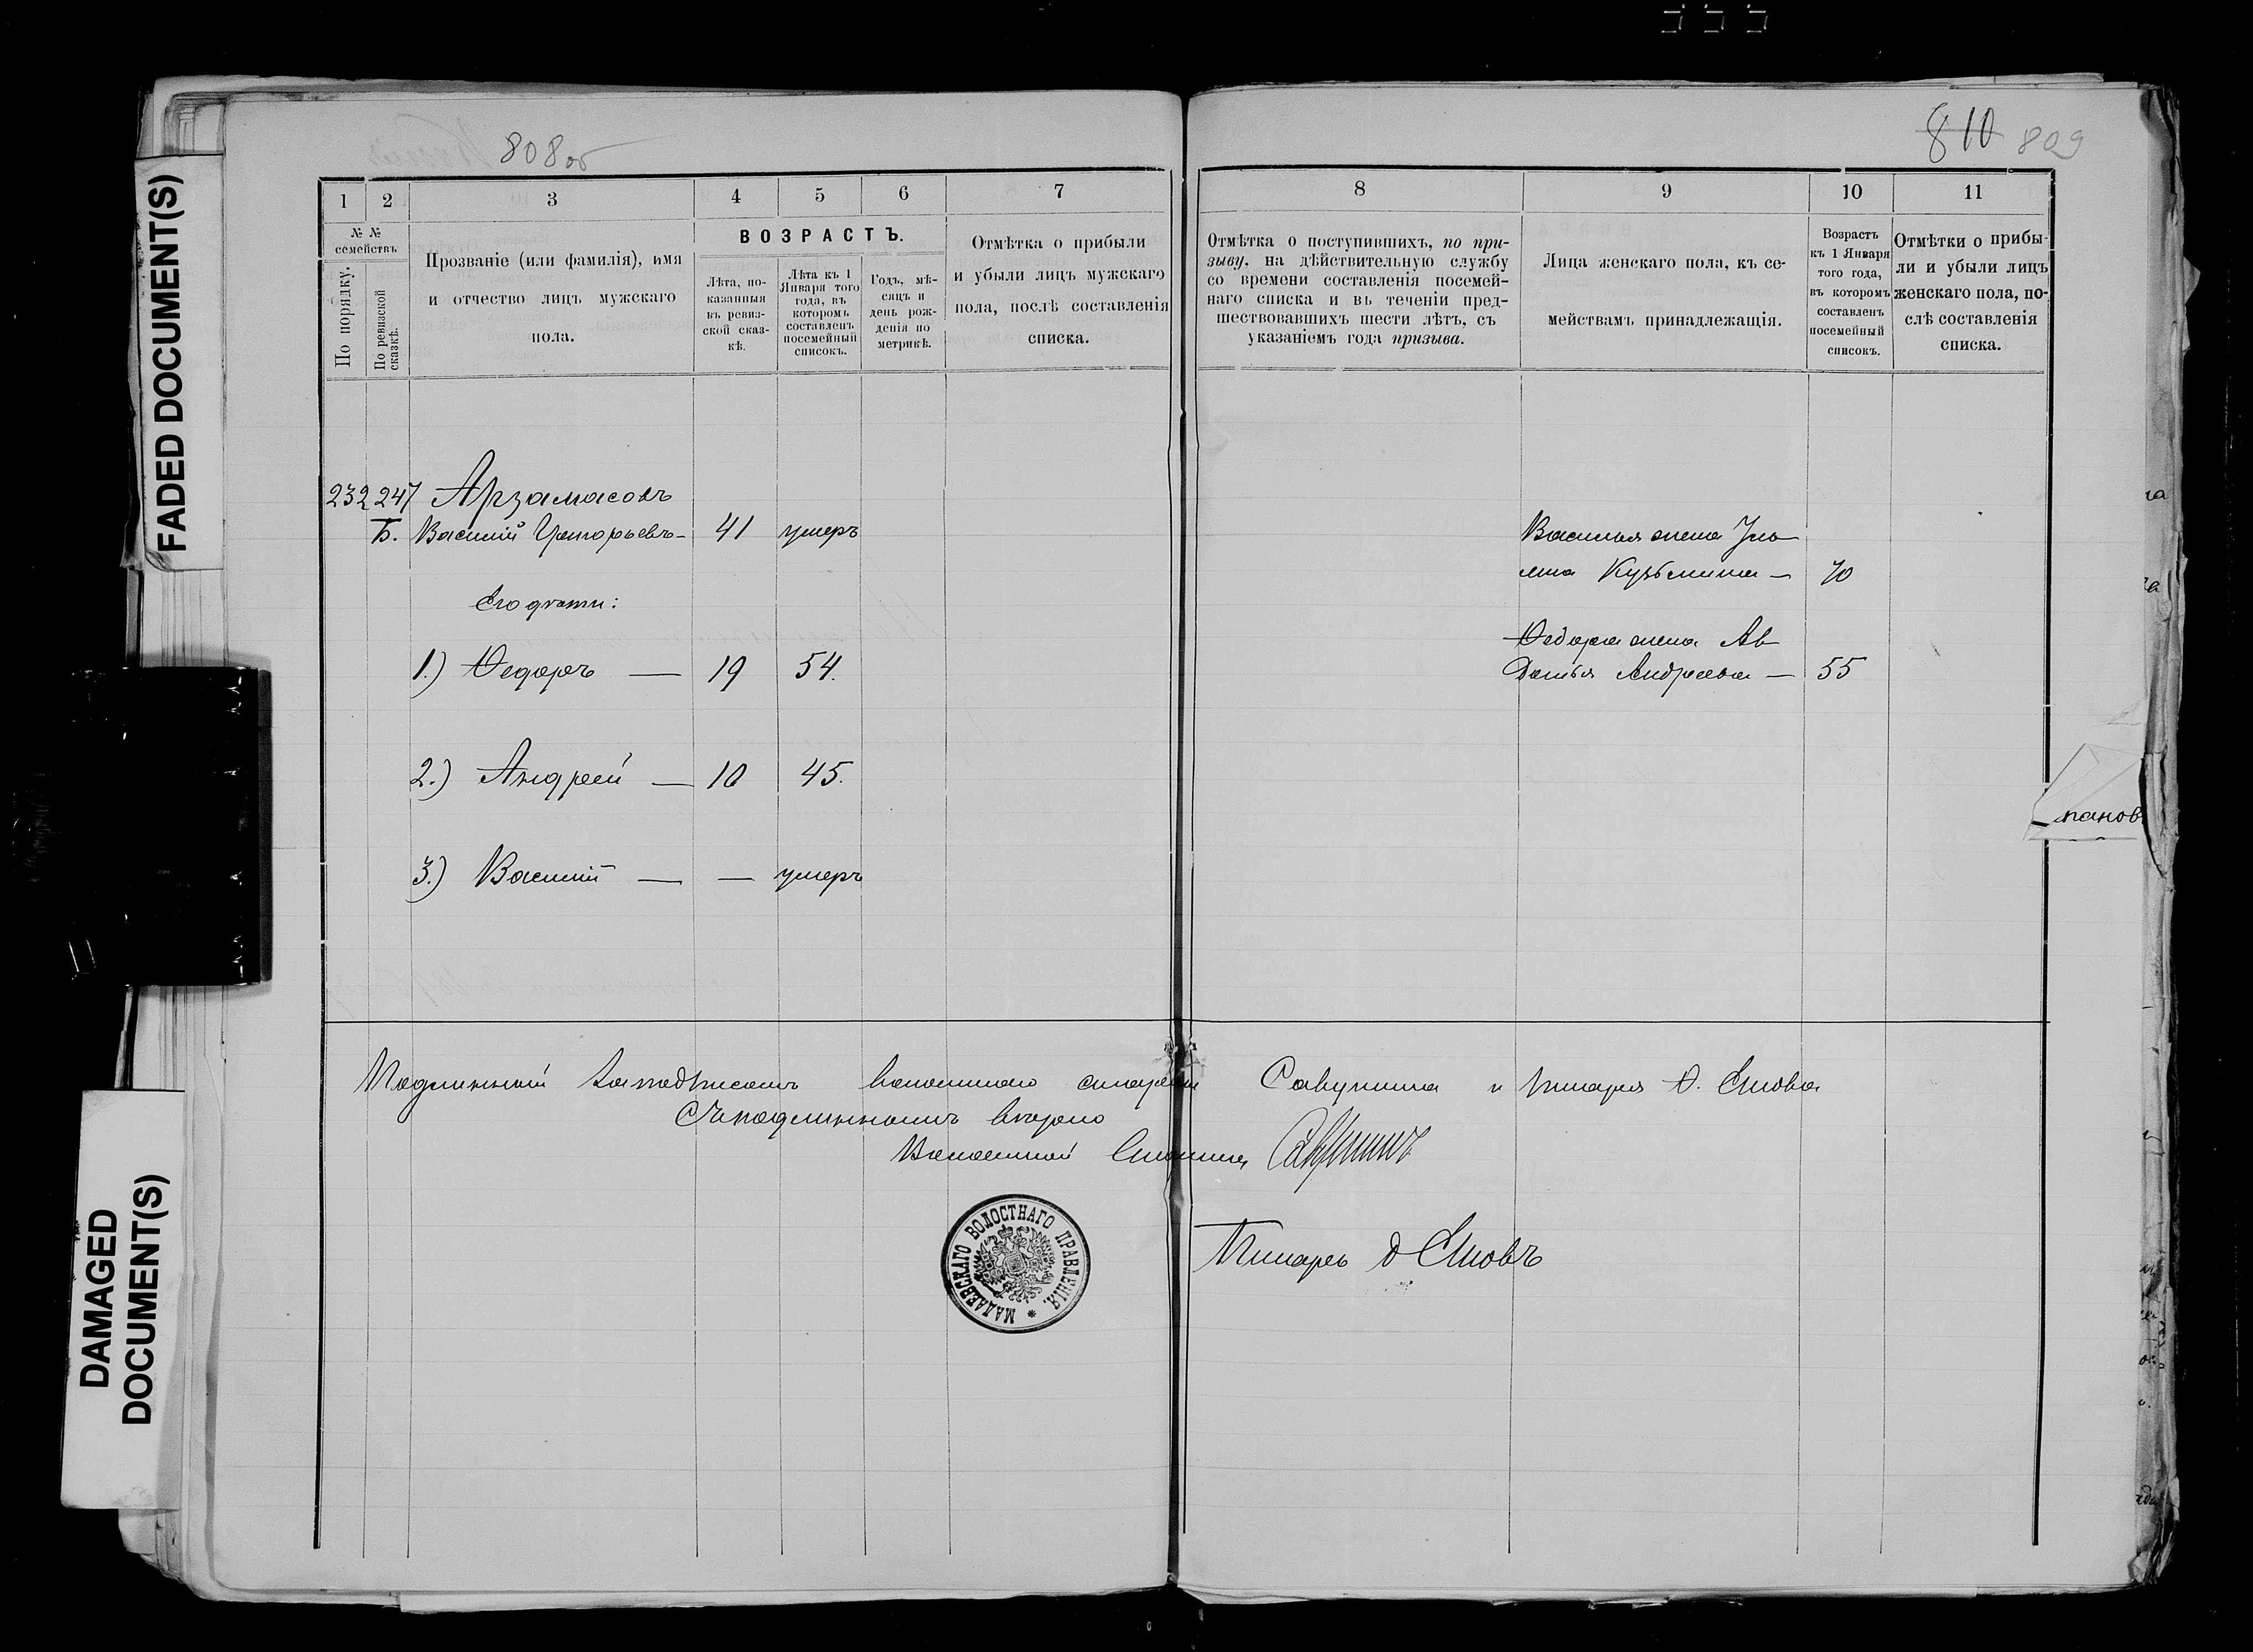 808 об
810 809
FADED DOCUMENT(S)
DAMAGED
DOCUMENT(S)
1 2 3 4 5 6 7 8 9 10 11
№ №
семействъ
По порядку.
По ревизской
сказкѣ.
Прозваніе (или фамилія), имя
и отчество лицъ мужскаго
пола.
ВОЗРАСТЪ.
Лѣта, по-
казанныя
въ ревиз-
ской сказ-
кѣ.
Лѣта къ 1
Января того
года, въ
которомъ
составленъ
посемейный
списокъ.
Годъ, мѣ-
сяцъ и
день рож-
денія по
метрикѣ.
Отмѣтка о прибыли
и убыли лицъ мужскаго
пола, послѣ составленія
списка.
Отмѣтка о поступившихъ, по при-
зыву, на дѣйствительную службу
со времени составленія посемей-
наго списка и въ теченіи пред-
шествовавшихъ шести лѣтъ, съ
указаніемъ года призыва.
Лица женскаго пола, къ се-
мействамъ принадлежащія.
Возрастъ
къ 1 Января
того года,
въ которомъ
составленъ
посемейный
списокъ.
Отмѣтки о прибы-
ли и убыли лицъ
женскаго пола, по-
слѣ составленія
списка.
232 247 Арзамасовъ
Б. Василій Григорьевъ - 41 умеръ
Василья жена Улья
яна Кузьмина — 70
Его дѣти:
1.) Ѳедоръ — 19 54.
Ѳедора жена Ав
дотья Андреева — 55
2.) Андрей — 10 45.
3.) Василій — — умеръ
панов
Подлинный за подписомъ волостнаго старшины Савунина и писаря Ѳ. Емова
Съ подлиннымъ вѣрно
Волостной Старшина Савунинъ
МАДАЕВСКАГО ВОЛОСТНАГО ПРАВЛЕНІЯ.
Писарь Ѳ Емовъ